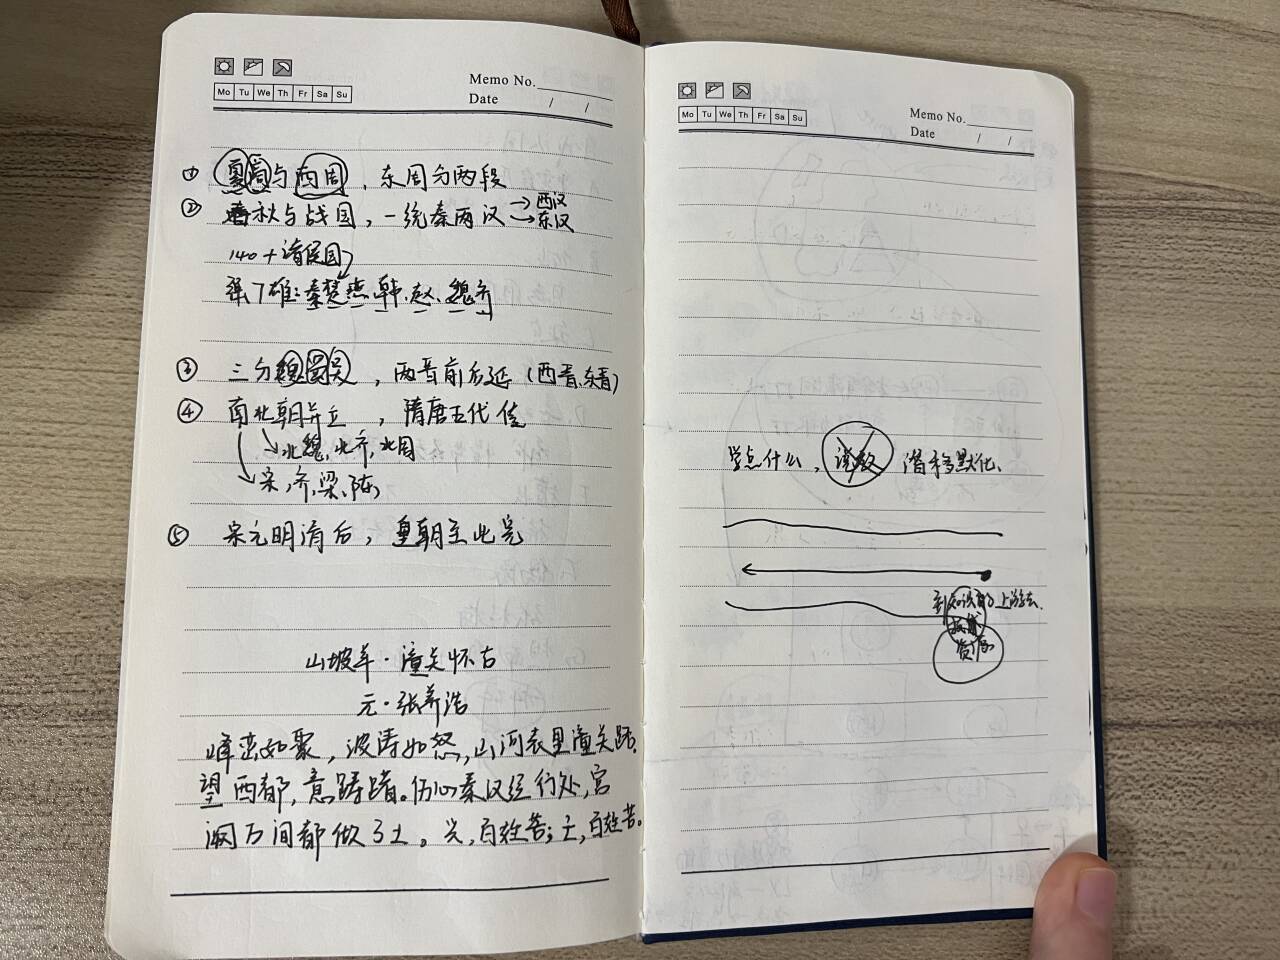 Memo No.
Mo Tu We Th Fr Sa Su
Date / /
① 夏商与西周，东周分两段
② 春秋与战国，一统秦两汉 → 西汉
→ 东汉
140+诸侯国
7雄：秦楚燕韩、赵、魏齐
③ 三分魏蜀吴，两晋前后延（西晋、东晋）
④ 南北朝并立，隋唐五代传
北魏，北齐，北周
宋，齐，梁、陈，
⑤ 宋元明清后，皇朝至此完
山坡羊·潼关怀古
元·张养浩
峰峦如聚，波涛如怒，山河表里潼关路。
望西都，意踌躇。伤心秦汉经行处，宫
阙万间都做了土。兴，百姓苦；亡，百姓苦。
Memo No.
Mo Tu We Th Fr Sa Su
Date / /
学点什么，潜移默化、
到知识的上游去.